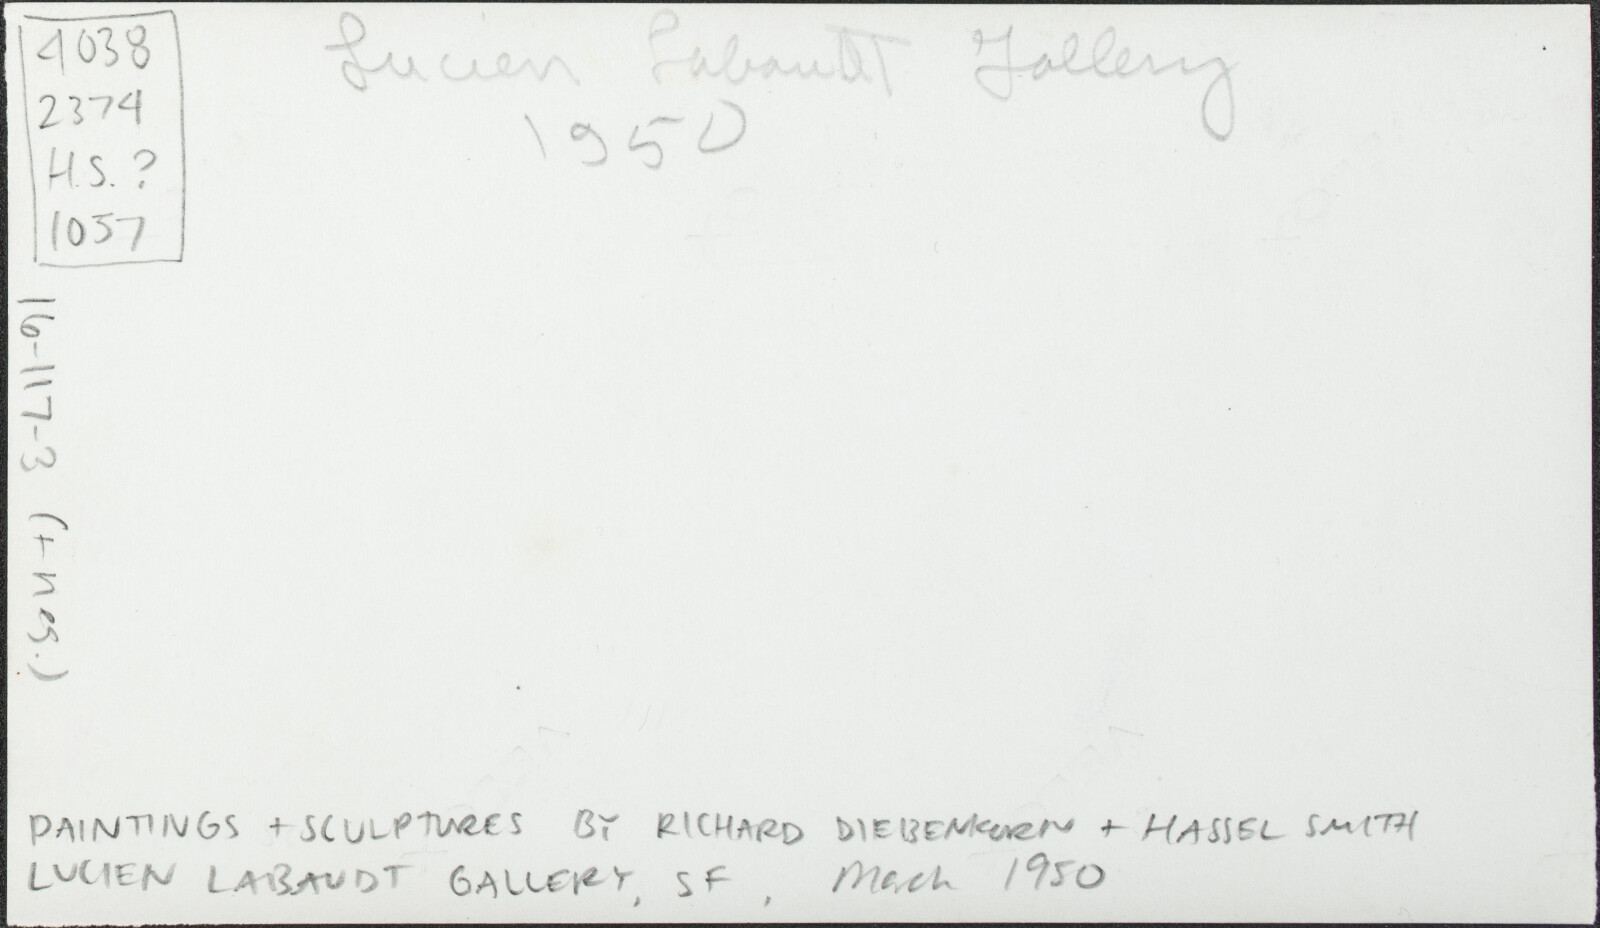 4038
2374
H.S.?
1057
Lucien Labaudt Gallery
1950
16-117-3 (+neg.)
PAINTINGS + SCULPTURES BY RICHARD DIEBENKORN + HASSEL SMITH
LUCIEN LABAUDT GALLERY, SF, March 1950